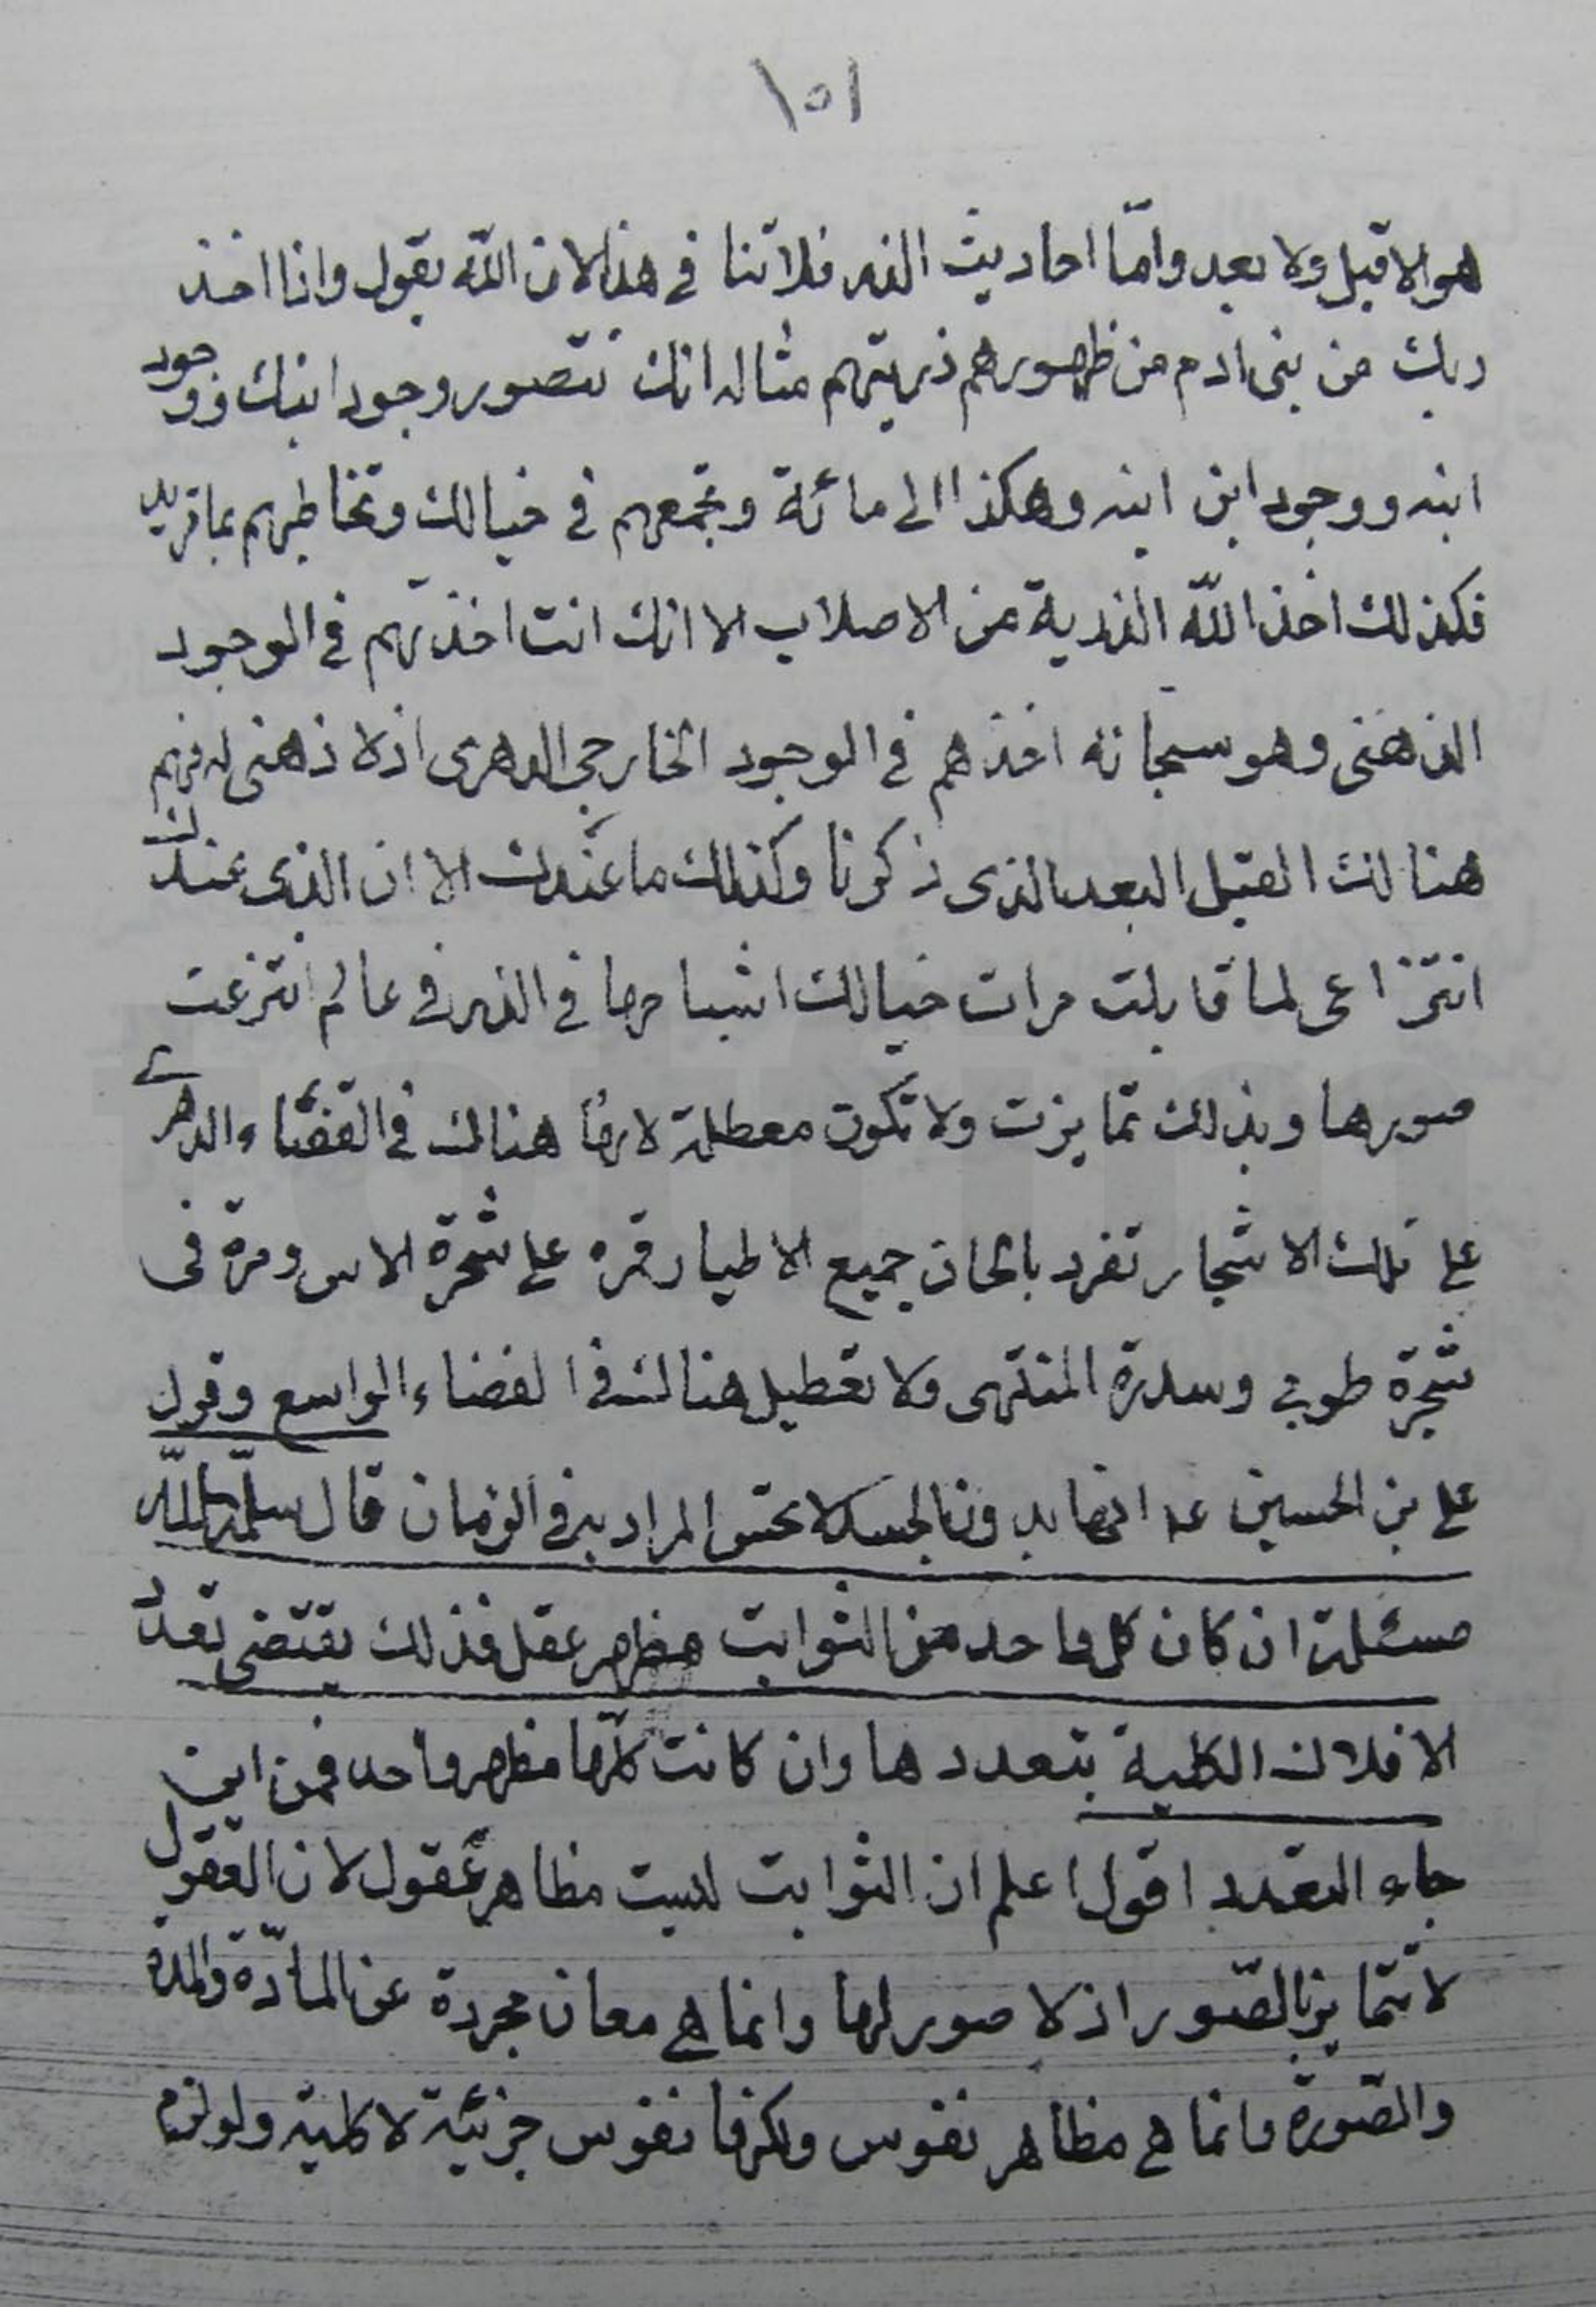 ١٥١
هو الا قبل ولا بعد وامّا احاديث الذر فلاتنا فى هذا لان اللّه يقول واذا اخذ
ربك من بنى ادم من ظهورهم ذريتهم مثاله انك تتصور وجود ابنك ووجود
ابنه ووجود ابن ابنه وهكذا الى مائة وتجمعهم فى خيالك وتخاطبهم بما تريد
فكذلك اخذ اللّه الذرية من الاصلاب الا انك انت اخذتهم فى الوجود
الذهنى وهو سبحانه اخذهم فى الوجود الخارجى الدهرى اذ لا ذهنى له فهم
هنالك القبل البعد الذى ذكرنا وكذلك ما عندك الا ان الذى عندك
انتزاعى لما قابلت مرات خيالك اشباحها فى الذر فى عالم انتزعت
صورها وبذلك تمايزت ولا تكون معطلة لانها هنالك فى القضاء الدهرى
على تلك الاشجار تغرد بالحان جميع الاطيار فمرة على شجرة الاس ومرة فى
شجرة طوبى وسدرة المنتهى ولا تعطيل هنالك فى الفضاء الواسع وقول
على بن الحسين عه انها بدون الجسد لا تحس المراد به فى الزمان قال سلّمه اللّه
مسئلة ان كان كل واحد من الثوابت مظهر عقل فذلك يقتضى تعدد
الافلاك الكلية بتعددها وان كانت كلّها مظهر واحد فمن اين
جاء التعدد اقول اعلم ان الثوابت ليست مظاهر عقول لان العقول
لا تتمايز بالصّور اذ لا صور لها وانما هى معان مجردة عن المادّة والمدة
والصّورة وانما هى مظاهر نفوس ولكنها نفوس جزئية لا كلية ولو لزم